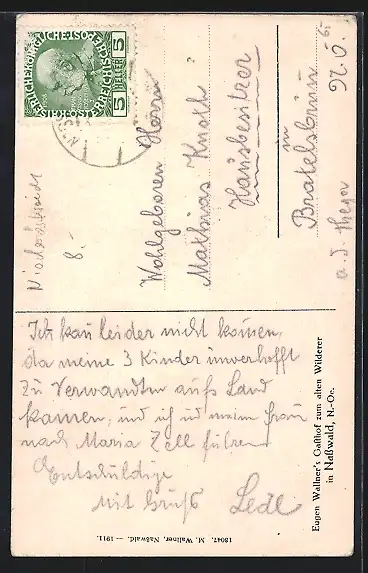 KAISERLICHE KÖNIGLICHE ÖSTERREICHISCHE POST
5 HELLER 5
Wohlgeboren Herrn
Mathias Knoth
Hausbesitzer
in
Bratelsbrunn
N.Ö.
8.-
Ich kan leider nicht komen,
da meine 3 Kinder unverhofft
zu Verwandten aufs Land
kamen, und ich ud meine frau
nach Maria Zell führen
Entschuldige
Mit Gruß Ledl
Eugen Wallner's Gasthof zum alten Wilderer
in Naßwald, N.-Oe.
18047. M. Wallner, Naßwald. — 1911.